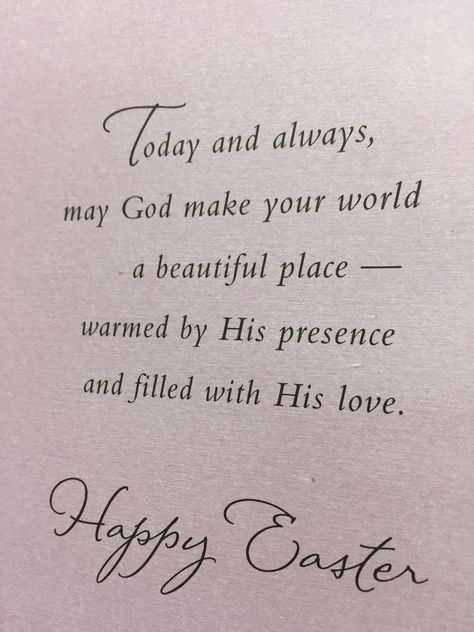 Today and always,
may God make your world
a beautiful place —
warmed by His presence
and filled with His love.
Happy Easter